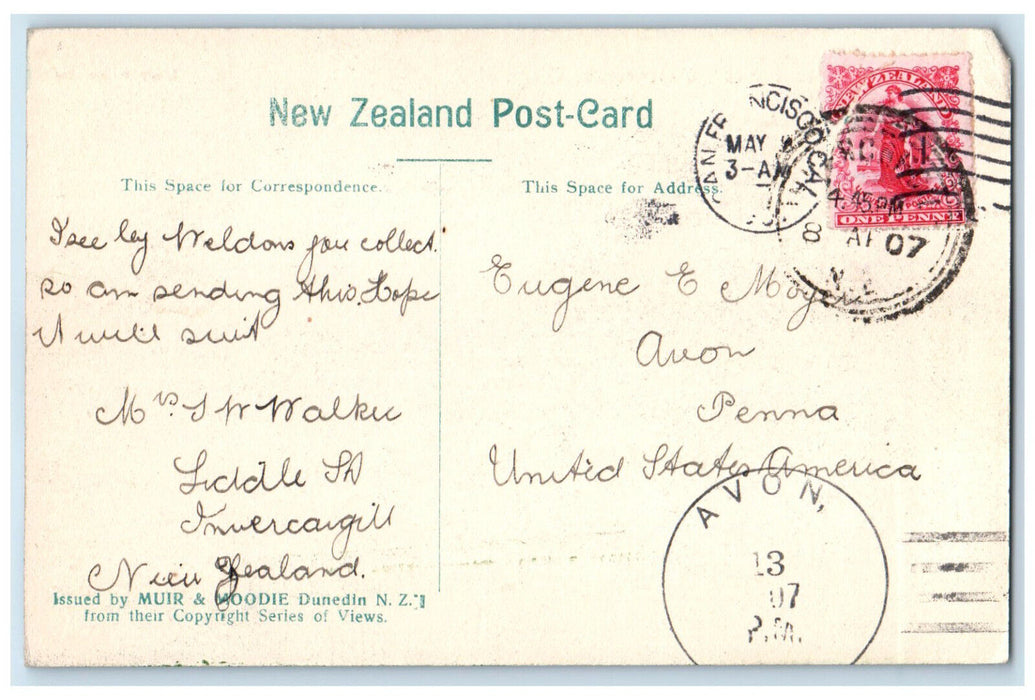 New Zealand Post-Card
This Space for Correspondence.
This Space for Address.
I see by Weldons you collect
so am sending this. Hope
it will suit
Mrs J W Walker
Liddle St
Invercargill
New Zealand.
Issued by MUIR & MOODIE Dunedin N. Z.
from their Copyright Series of Views.
Eugene E Moyer
Avon
Penna
United States America
NEW ZEALAND
ONE PENNY
SAN FRANCISCO, CAL.
MAY
3-AM
4.45 PM
8 AP 07
N.Z
AVON,
13
07
P.M.